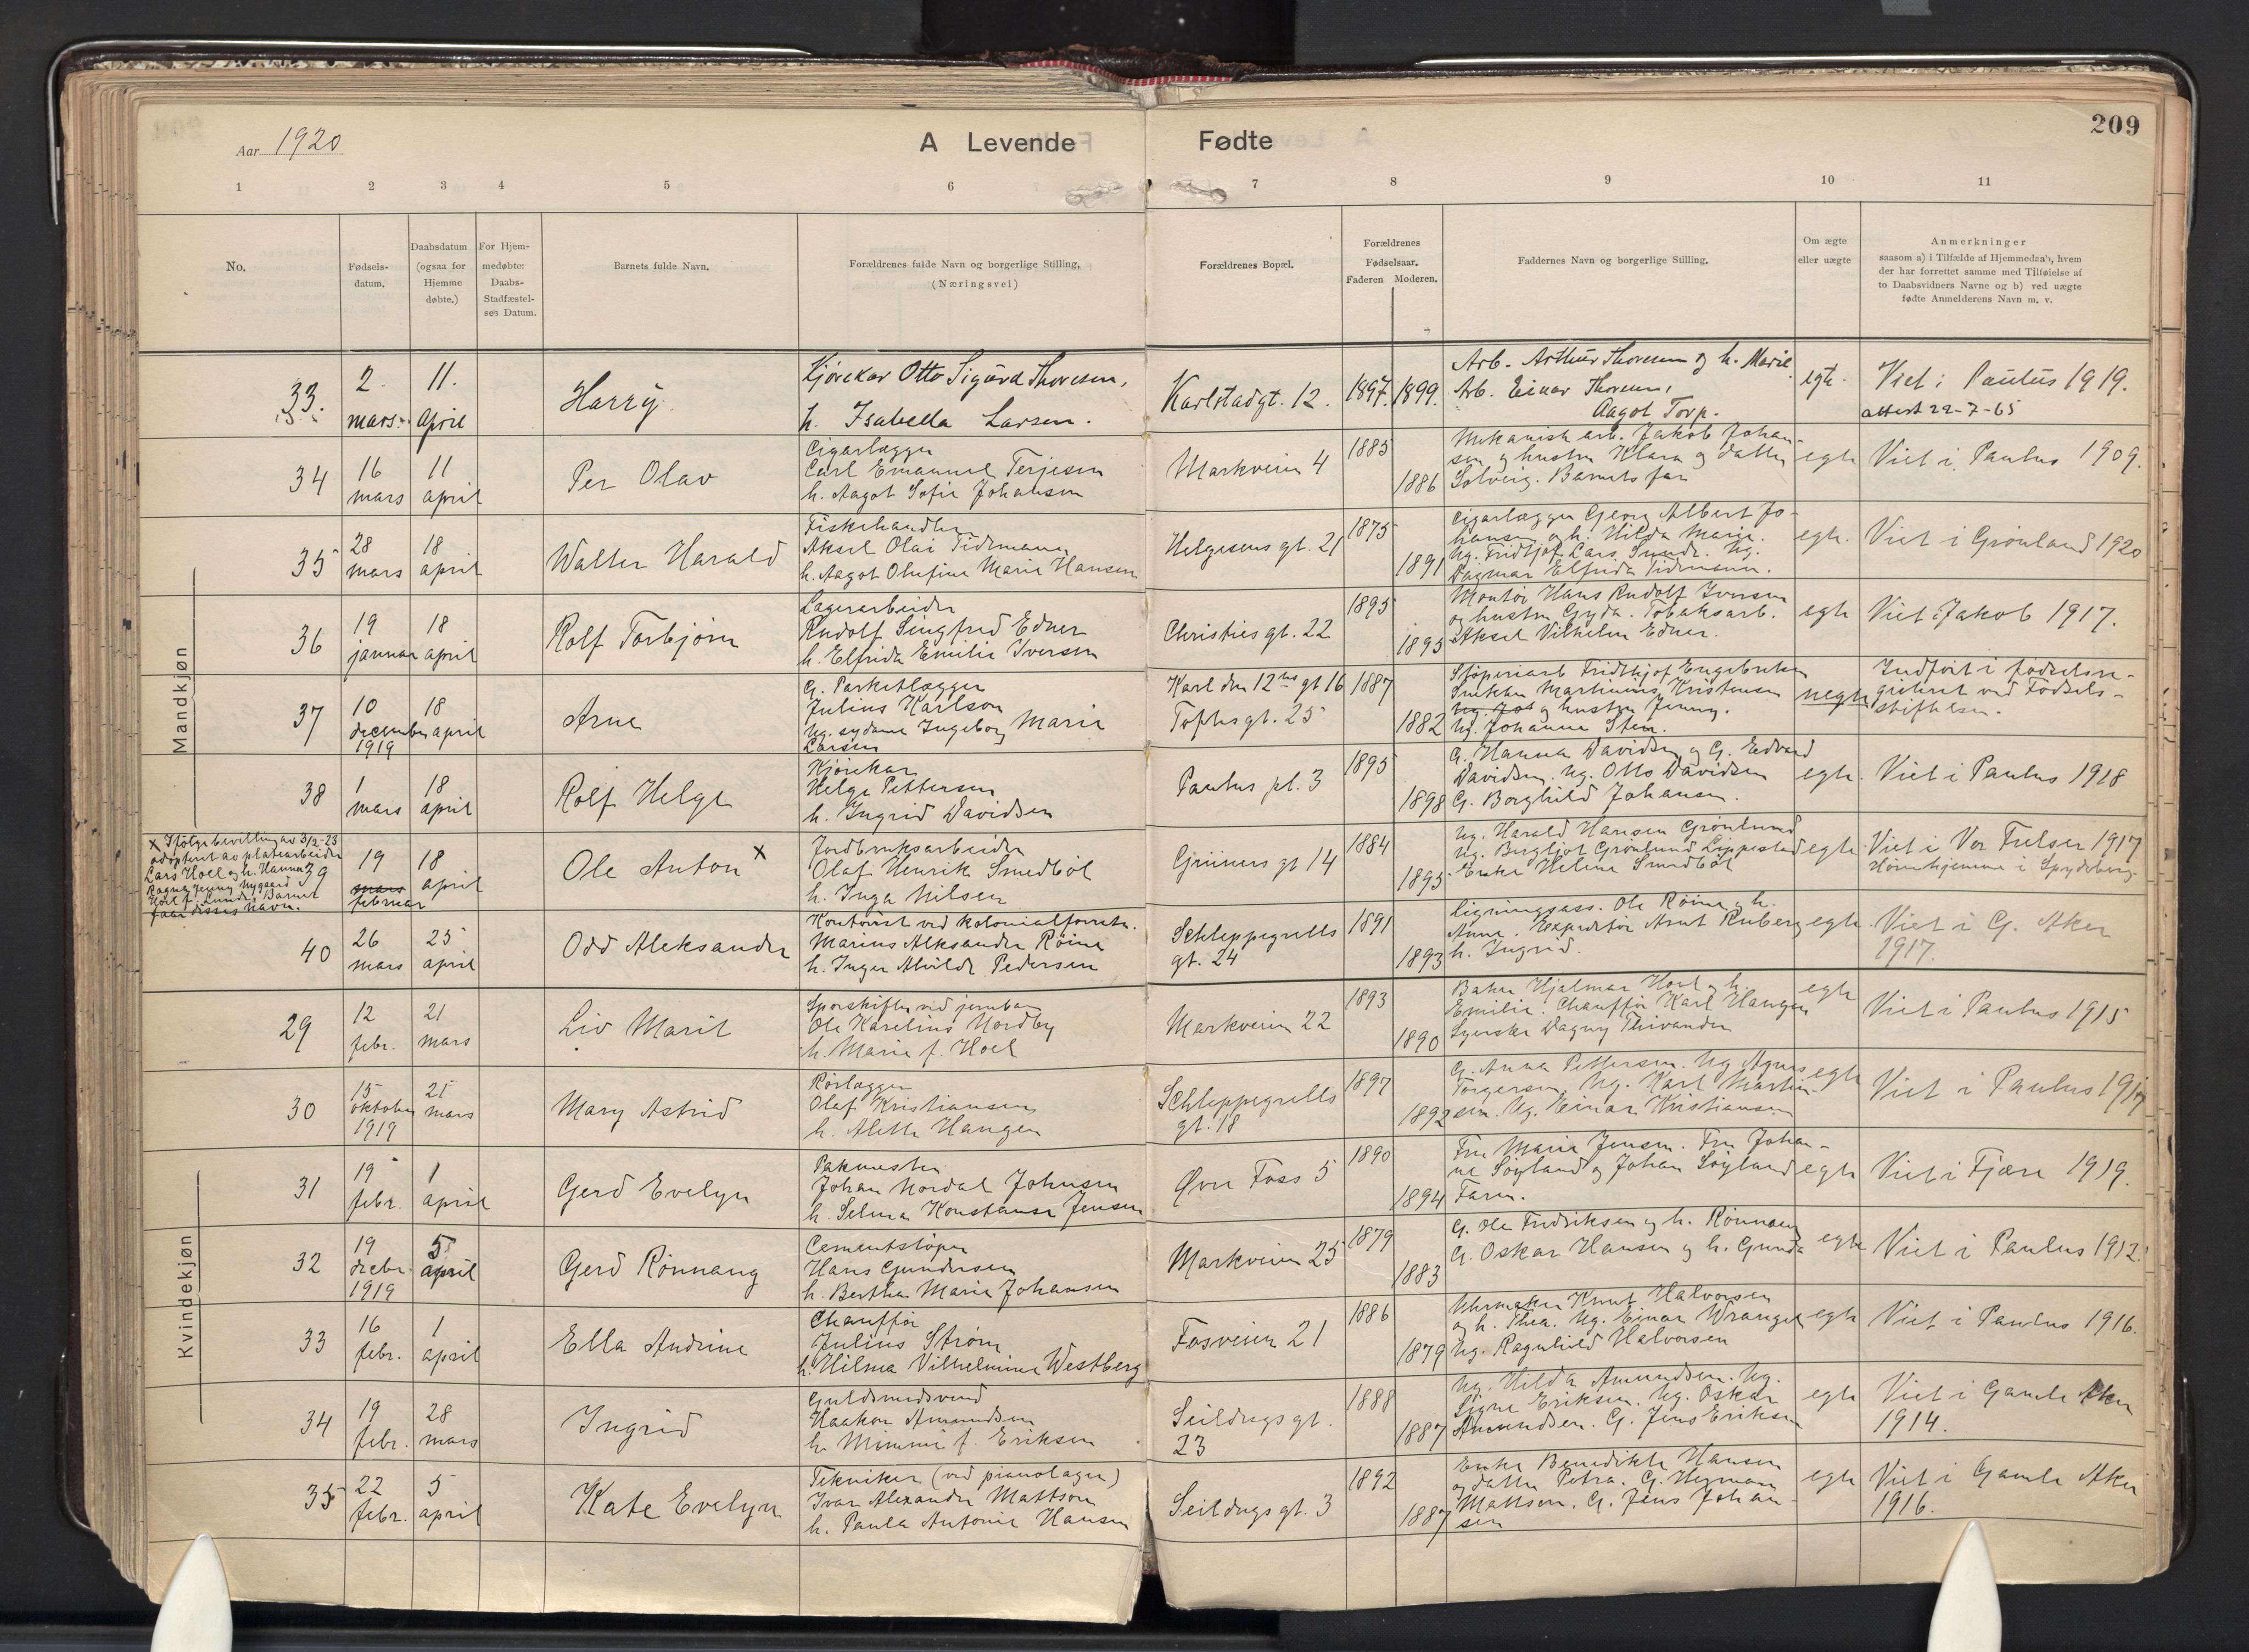 Aar 1920
A Levende Fødte
209
1 2 3 4 5 6 7 8 9 10 11
No.
Fødsels-
datum.
Daabsdatum
(ogsaa for
Hjemme
døbte.)
For Hjem-
medøbte:
Daabs-
Stadfæstel-
ses Datum.
Barnets fulde Navn.
Forældrenes fulde Navn og borgerlige Stilling.
(Næringsvei)
Forældrenes Bopæl.
Forældrenes
Fødselsaar.
Faderen Moderen.
Faddernes Navn og borgerlige Stilling.
Om ægte
eller uægte
Anmerkninger
saasom a) i Tilfælde af Hjemmedaab, hvem
der har forrettet samme med Tilføielse af
to Daabsvidners Navne og b) ved uægte
fødte Anmelderens Navn m. v.
Mandkjøn
33.
2.
mars.
11.
April
Harry.
Kjørekar Otto Sigurd Thoresen,
h. Isabella Larsen.
Karlstadgt. 12.
1897. 1899.
Arb. Arthur Thoresen og h. Marie
Arb. Einar Thoresen,
Aagot Torp.
egte.
Viet i Paulus 1919.
attest 22-7-65
34
16
mars
11
april
Per Olav
Cigarlægger
Carl Emanuel Terjesen
h. Aagot Sofie Johansen
Markveien 4
1885
1886
Mekanisk arb. Jakob Johan-
sen og hustru Klara og datter
Solveig. Barnets far
egte
Viet i Paulus 1909.
35
28
mars
18
april
Walter Harald
Fiskehandler
Aksel Olai Tidemann
h. Aagot Olufine Marie Hansen
Helgesens gt. 21
1875
1891
Cigarlægger Georg Albert Jo-
hansen og h. Hilda Marie.
Ug. Fridtjof Lars Sunde. Ug.
Dagmar Elfrida Tidemann.
egte.
Viet i Grønland 1920
36
19
januar
18
april
Rolf Torbjørn
Lagerarbeider
Rudolf Singfred Edner
h. Elfrida Emilie Iversen
Christies gt. 22
1895
1895
Montør Hans Rudolf Iversen
og hustru Gyda. Tobaksarb.
Aksel Vilhelm Edner.
egte
Viet i Jakob 1917.
37
10
december
1919
18
april
Arne
G. Parketlægger
Julius Karlson
Ug. sydame Ingeborg Marie
Larsen
Karl den 12tes gt 16
Toftesgt. 25
1887
1882
Støperiarb Fridthjof Engebretsen
Snekker Martinius Kristensen
og hustru Jenny.
Ug. Johanne Sten.
uegte
Indført i fødselsre-
gisteret ved Fødsels-
stiftelsen.
38
1
mars
18
april
Rolf Helge
Kjørekar
Helge Pettersen
h. Ingrid Davidsen
Paulus pl. 3
1895
1898
G. Hanna Davidsen og G. Edvard
Davidsen. Ug. Otto Davidsen
G. Borghild Johansen.
egte.
Viet i Paulus 1918
x Ifølge bevilling av 3/2-23
adopteret av platearbeider
Lars Hoel og h. Hanna
Ragna Jenny Nygaard
Hoel f. Lunde. Barnet
faar disses navn.
39
19
mars
februar
18
april
Ole Anton x
Jordbruksarbeider
Olaf Henrik Smedbøl
h. Inga Nilsen
Grüners gt 14
1884
1895
Ug. Harald Hansen Grønlund
Ug. Bergljot Grønlund Leppestad
Enke Helene Smedbøl
egte
Viet i Vor Frelser 1917
Hører hjemme i Spydeberg.
40
26
mars
25
april
Odd Aleksander
Kontorist ved kolonialforretn.
Marius Aleksander Røine
h. Inger Alvilde Pedersen
Schleppegrells
gt. 24
1891
1893
Ligningsass. Ole Røine og h.
Anne. Expeditør Arnt Ruberg
h. Ingrid.
egte
Viet i G. Aker
1917.
Kvindekjøn
29
12
febr.
21
mars
Liv Marit
Sporskifter ved jernban
Ole Karelius Nordby
h. Marie f. Hoel
Markveien 22
1893
1890
Baker Hjalmar Hoel og h.
Emilie. Chauffør Karl Haugen
Syerske Dagny Thivander
egte
Viet i Paulus 1915
30
15
oktober
1919
21
mars
Mary Astrid
Rørlægger
Olaf Kristiansen
h. Alette Haugen
Schleppegrells
gt. 18
1897
1892
G. Anna Pettersen. Ug Agnes
Torgersen. Ug. Karl Martin-
sen. Ug. Einar Kristiansen
egte
Viet i Paulus 1917
31
19
febr.
1
april
Gerd Evelyn
Pakmester
Johan Nordal Johnsen
h. Selma Konstanse Jensen
Øvre Foss 5
1890
1894
Fru Marie Jensen. Fru Johan-
ne Søyland og Johan Søyland
Faren.
egte
Viet i Fjære 1919.
32
19
decbr.
1919
5
april
Gerd Rønnaug
Cementstøper
Hans Gundersen
h. Bertha Marie Johansen
Markveien 25
1879
1883
G. Ole Fredriksen og h. Rønnaug
G. Oskar Hansen og h. Gunda
egte
Viet i Paulus 1912.
33
16
febr.
1
april
Ella Andrine
Chauffør
Julius Strøm
h. Hilma Vilhelmine Westberg
Fosveien 21
1886
1879
Uhrmaker Knut Halvorsen
og h. Thea. Ug. Einar Wrangel
Ug. Ragnhild Halvorsen
egte
Viet i Paulus 1916.
34
19
febr.
28
mars
Ingrid
Guldsmedsvend
Haakon Amundsen
h. Mimmi f. Eriksen
Seildugsgt.
23
1888
1887
Ug. Hilda Amundsen. Ug.
Signe Eriksen. Ug. Oskar
Amundsen. G. Jens Eriksen
egte
Viet i Gamle Aker
1914.
35
22
febr.
5
april
Kate Evelyn
Tekniker (ved pianolager)
Ivar Alexander Mattson
h. Paula Antonie Hansen
Seildugsgt. 3
1892
1887
Enke Benedikte Hansen
og datter Petra. G. Herman
Mattson. G. Jens Johan-
sen
egte
Viet i Gamle Aker
1916.